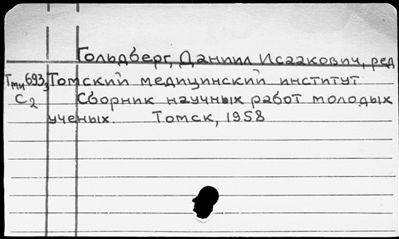 Гольдберг, Даниил Исаакович, ред
Тми693, Томский медицинский институт
С2 Сборник научных работ молодых
ученых. Томск, 1958